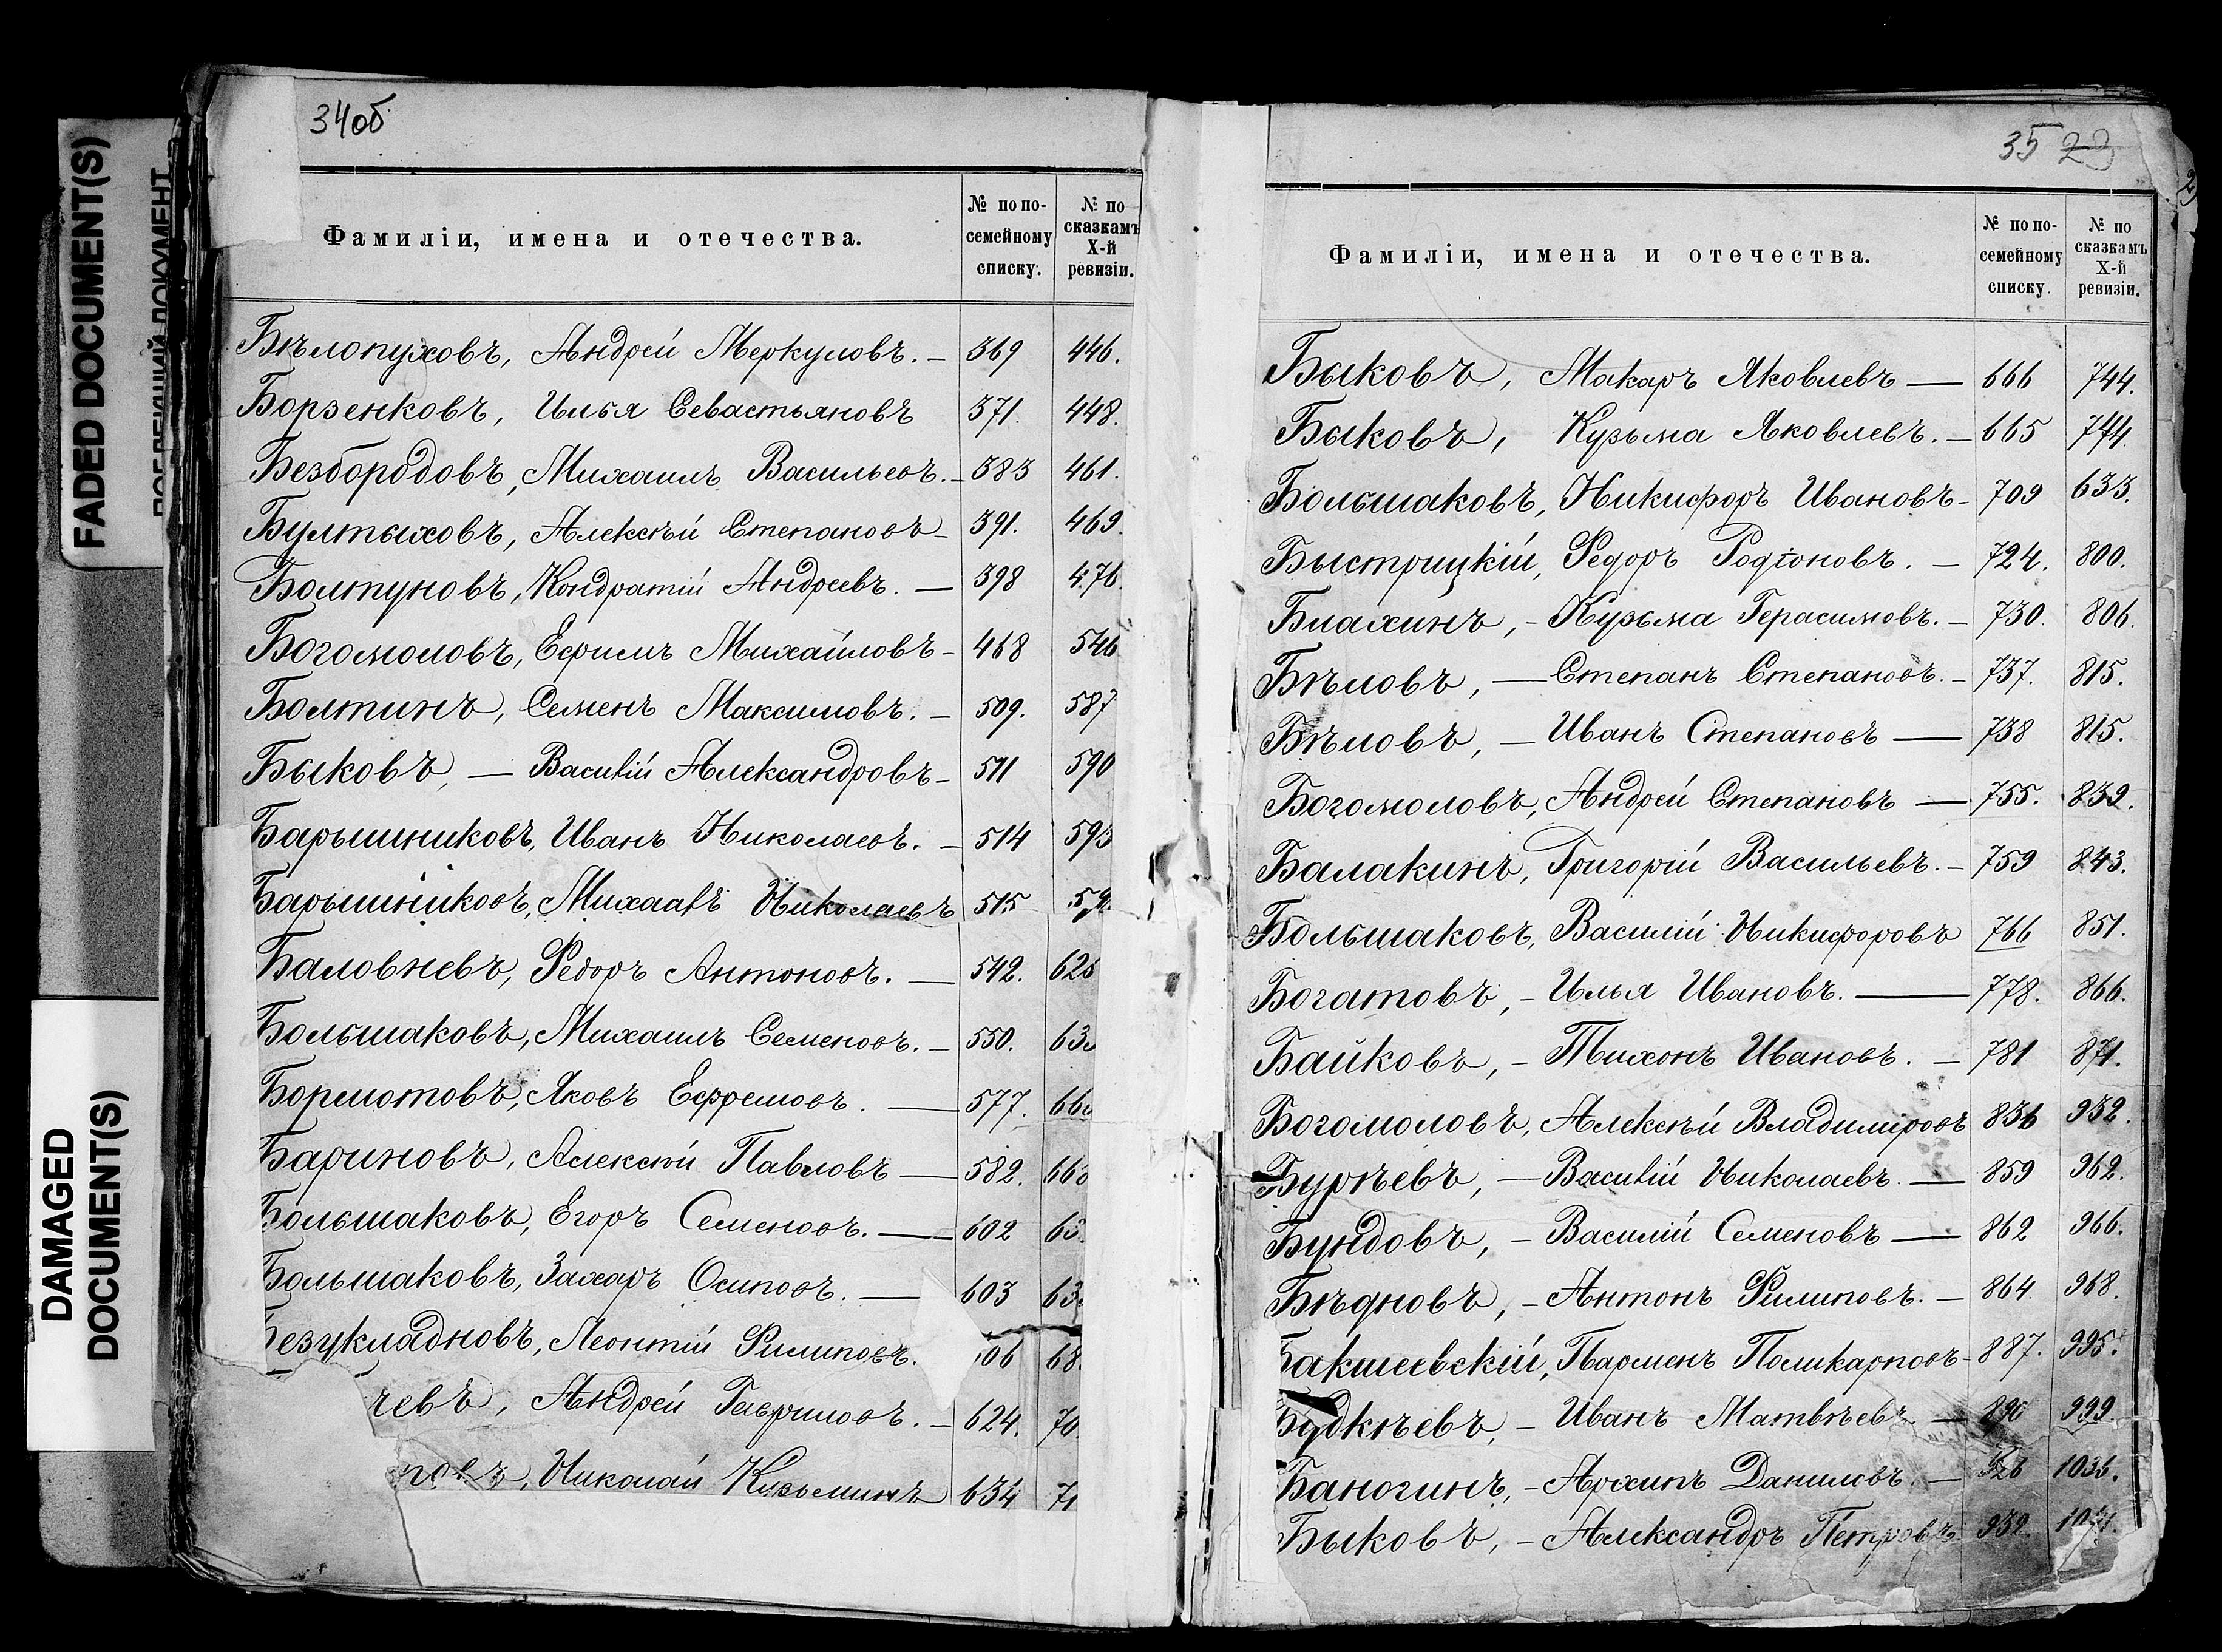 FADED DOCUMENT(S)
DAMAGED
DOCUMENT(S)
34об
Фамиліи, имена и отечества. № по по-семейному списку. № по сказкамъ X-й ревизіи.
Бѣлопуховъ, Андрей Меркуловъ. — 369 446.
Борзенковъ, Илья Севастьяновъ 371. 448.
Безбородовъ, Михаилъ Васильевъ. — 383 461.
Булты­ховъ, Алексѣй Степановъ — 391. 469.
Болтуновъ, Кондратій Андреевъ. — 398 476.
Богомоловъ, Ефимъ Михайловъ — 468 546
Болтинъ, Семенъ Максимовъ. — 509. 587
Быковъ, — Василій Александровъ — 511 590
Барышниковъ, Иванъ Николаевъ. — 514 593
Барышниковъ, Михаилъ Николаевъ 515 59
Баловневъ, Ѳедоръ Антоновъ. — 542. 625
Большаковъ, Михаилъ Семеновъ. — 550. 633
Бормотовъ, Яковъ Ефремовъ. — 577. 66
Бариновъ, Алексѣй Павловъ — 582. 66
Большаковъ, Егоръ Семеновъ. — 602 63
Большаковъ, Захаръ Осиповъ. — 603 63
Безукладновъ, Леонтій Филиповъ. 06 68
чевъ, Андрей Гавриловъ. — 624. 70
повъ, Николай Кузьминъ 634 71
35 23
Фамиліи, имена и отечества. № по по-семейному списку. № по сказкамъ X-й ревизіи.
Быковъ, Макаръ Яковлевъ — 666 744.
Быковъ, Кузьма Яковлевъ. — 665 744.
Большаковъ, Никифоръ Ивановъ — 709 633.
Быстрицкій, Ѳедоръ Родіоновъ. — 724. 800.
Блахинъ, — Кузьма Герасимовъ. — 730. 806.
Бѣловъ, — Степанъ Степановъ. — 737. 815.
Бѣловъ, — Иванъ Степановъ — 738 815.
Богомоловъ, Андрей Степановъ — 755. 839.
Балакинъ, Григорій Васильевъ. — 759 843.
Большаковъ, Василій Никифоровъ 766 851.
Богатовъ, — Илья Ивановъ. — 778. 866.
Байковъ, — Тихонъ Ивановъ. — 781 871.
Богомоловъ, Алексѣй Владиміровъ 836 932.
Бурѣевъ, — Василій Николаевъ. — 859 962.
Бундовъ, — Василій Семеновъ — 862 966.
Бѣдновъ, — Антонъ Филиповъ. — 864. 968.
Бакшеевскій, Парменъ Поликарповъ — 887. 995.
Будкѣевъ, — Иванъ Матвѣевъ — 890 999.
Баногинъ, — Архипъ Даниловъ. — 926 1036.
Быковъ, — Александръ Петровъ 939.